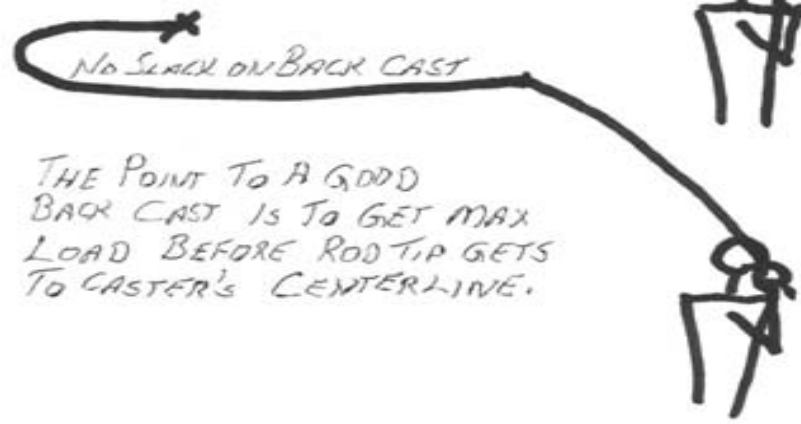 NO SLACK ON BACK CAST
THE POINT TO A GOOD
BACK CAST IS TO GET MAX
LOAD BEFORE ROD TIP GETS
TO CASTER'S CENTERLINE.